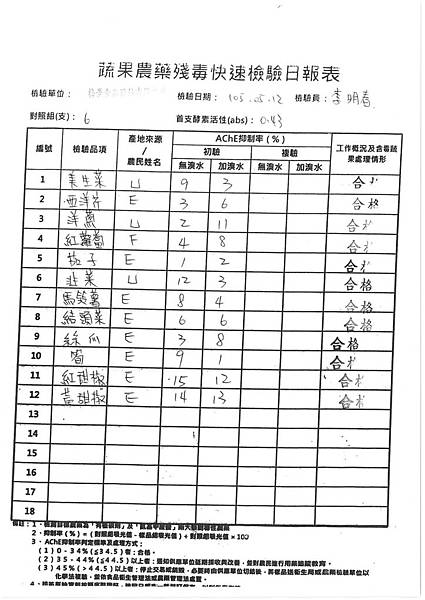 蔬果農藥殘毒快速檢驗日報表
檢驗單位： 檢驗日期： 105.05.12 檢驗員： 李明春
對照組(支)： 6 首支酵素活性(abs)： 0.43
編號 檢驗品項 產地來源/農民姓名 AChE抑制率(%) 工作概況及含毒蔬果處理情形
初驗 複驗
無溴水 加溴水 無溴水 加溴水
1 美生菜 U 9 3 合格
2 西洋芹 E 3 6 合格
3 洋蔥 U 2 11 合格
4 紅蘿蔔 F 4 8 合格
5 茄子 E 1 2 合格
6 韭菜 U 12 3 合格
7 馬鈴薯 E 8 4 合格
8 結頭菜 E 6 6 合格
9 絲瓜 E 3 8 合格
10 筍 E 9 1 合格
11 紅甜椒 E 15 12 合格
12 黃甜椒 E 14 13 合格
13
14
15
16
17
18
2．抑制率(%)＝(對照組吸光值－樣品組吸光值)÷對照組吸光值×100
3．AChE抑制率判定標準及處理方式：
(1)0－34%(≦34.5)者：合格。